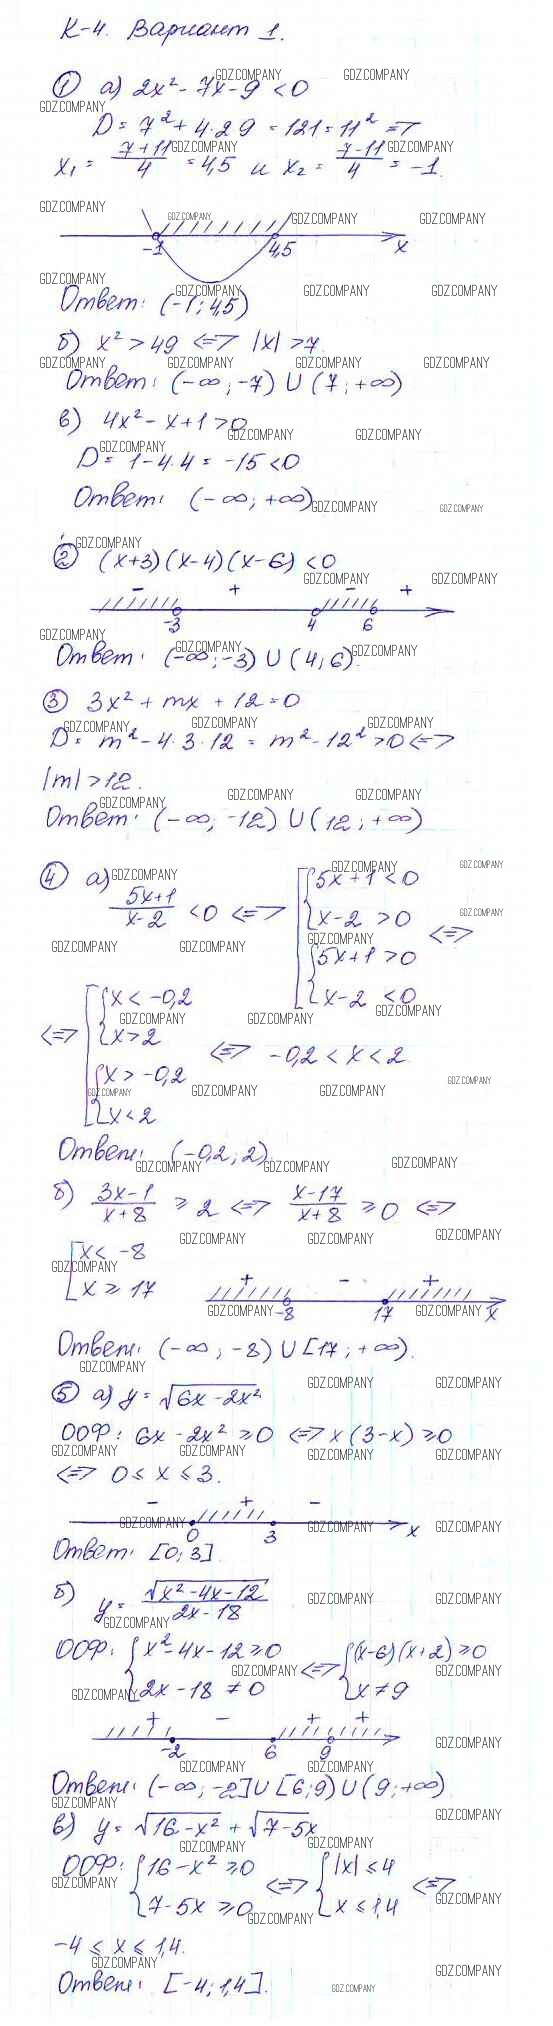 К-4. Вариант 1.
① а) 2x² - 7x - 9 < 0
D = 7² + 4·2·9 = 121 = 11² =>
x₁ = (7+11)/4 = 4,5 и x₂ = (7-11)/4 = -1.
-1 4,5 x
Ответ: (-1; 4,5)
б) x² > 49 <=> |x| > 7.
Ответ: (-∞; -7) ∪ (7; +∞)
в) 4x² - x + 1 > 0
D = 1 - 4·4 = -15 < 0
Ответ: (-∞; +∞)
② (x+3)(x-4)(x-6) < 0
- + - +
-3 4 6
Ответ: (-∞; -3) ∪ (4; 6).
③ 3x² + mx + 12 = 0
D = m² - 4·3·12 = m² - 12² > 0 <=>
|m| > 12.
Ответ: (-∞; -12) ∪ (12; +∞)
④ а) (5x+1)/(x-2) < 0 <=> [ { 5x+1 < 0
x-2 > 0
{ 5x+1 > 0
x-2 < 0 <=>
<=> [ { x < -0,2
x > 2
{ x > -0,2
x < 2 <=> -0,2 < x < 2.
Ответ: (-0,2; 2)
б) (3x-1)/(x+8) ≥ 2 <=> (x-17)/(x+8) ≥ 0 <=>
[ x < -8
x ≥ 17
+ - +
-8 17 x
Ответ: (-∞; -8) ∪ [17; +∞).
⑤ а) y = √(6x - 2x²)
ООФ: 6x - 2x² ≥ 0 <=> x(3-x) ≥ 0
<=> 0 ≤ x ≤ 3.
- + -
0 3 x
Ответ: [0; 3].
б) y = √(x² - 4x - 12)/(2x - 18)
ООФ: { x² - 4x - 12 ≥ 0
2x - 18 ≠ 0 <=> { (x-6)(x+2) ≥ 0
x ≠ 9
+ - + +
-2 6 9
Ответ: (-∞; -2] ∪ [6; 9) ∪ (9; +∞)
в) y = √(16 - x²) + √(7 - 5x)
ООФ: { 16 - x² ≥ 0
7 - 5x ≥ 0 <=> { |x| ≤ 4
x ≤ 1,4 <=>
-4 ≤ x ≤ 1,4.
Ответ: [-4; 1,4].
GDZ.COMPANY